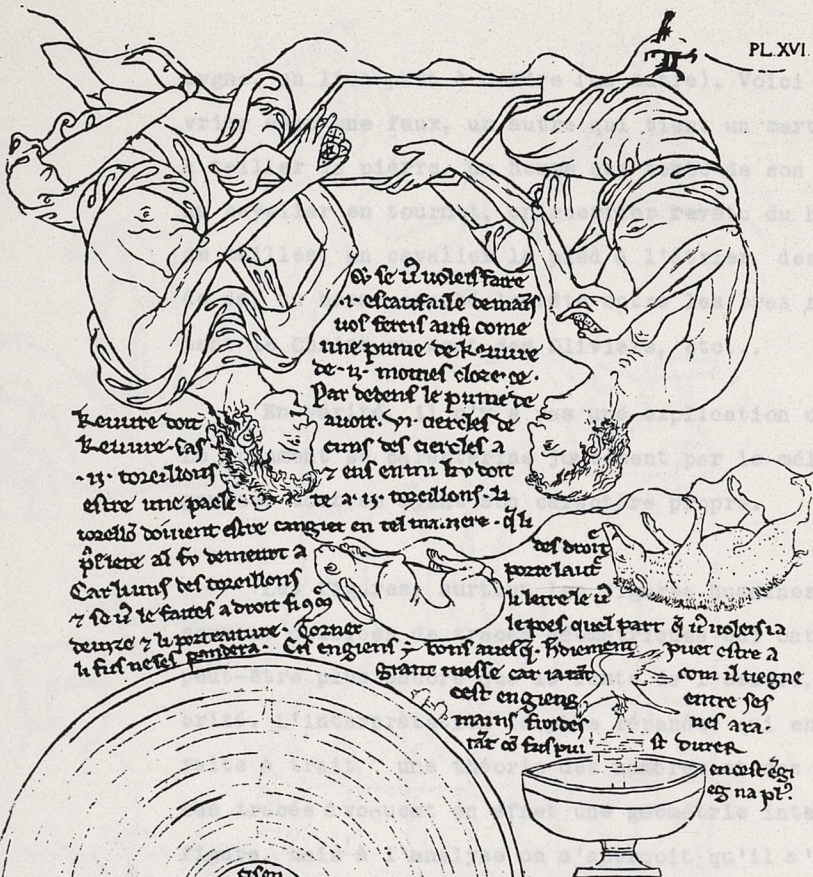 PL. XVI.
& se v voleis faire
.i. escaufaile de mains
vos fereis ausi come
une pume de keuvre
de .ii. moities cloze ce.
Par dedens le pume de
keuvre doit avoir .vi. cercles de
keuvre. Cas cuns des cercles a
.ii. toreillons & ens enmi le fv doit
estre une paele te a .ii. toreillons. Li
torellō doivent estre cangiet en tel maniere. q̄ li
al fv demeurt a des droit
Car li uns des toreillons porte laut
& se v le faites a droit si 9 li letre le v
devize & li portraiture. torner le poes quel part q̄ v voleis ia
li fus ne ses pandera. Cis engiens bons puet estre a
grant messe car ia tāt com il tiegne
cest engieng entre ses
mains froides nes ara.
tāt cō fus pui st durer